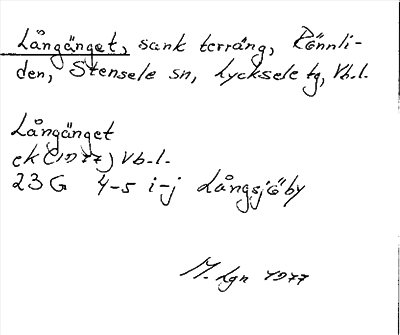 Långänget, sank terräng, Rönnli-
den, Stensele sn, Lycksele tg, Vb.l.
Långänget
ek (1977) Vb.l.
23 G 4-5 i-j Långsjöby
M. Lgn 1977